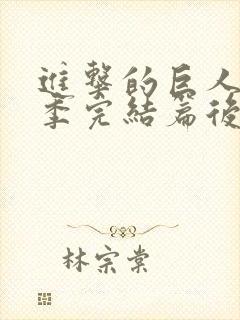 進擊的巨人
季完結篇後
林宗棠